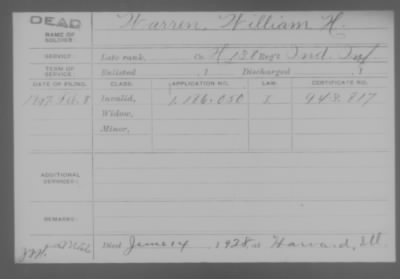 DEAD
NAME OF SOLDIER:
Warren, William H.
SERVICE:
Late rank, Co. H, 138 Reg't Ind. Inf.
TERM OF SERVICE:
Enlisted , 1 Discharged , 1
DATE OF FILING. CLASS. APPLICATION NO. LAW. CERTIFICATE NO.
1897 Feb. 8 Invalid, 1,186,050 943,817
Widow,
Minor,
ADDITIONAL SERVICES:
REMARKS:
Died June 14, 1928, at Harvard, Ill.